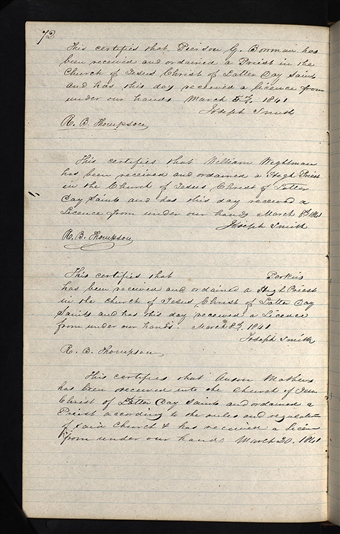 72
This certifies that Pierson G. Bowman has
been received and ordained a Priest in the
Church of Jesus Christ of Latter Day Saints
and has this day received a Licence from
under our hands March 5th, 1841
Joseph Smith
R. B. Thompson
This certifies that William Wightman
has been received and ordained a High Priest
in the Church of Jesus Christ of Latter
Day Saints and has this day received a
Licence from under our hands March 1841
Joseph Smith
R. B. Thompson
This certifies that Perkins
has been received and ordained a High Priest
in the Church of Jesus Christ of Latter Day
Saints and has this day received a Licence
from under our hands. March 8th, 1841
Joseph Smith
R. B. Thompson
This certifies that Anson Mathews
has been received into the Church of Jesus
Christ of Latter Day Saints and ordained a
Priest according to the rules and regulations
of said Church & has received a Licence
from under our hands March 20, 1841